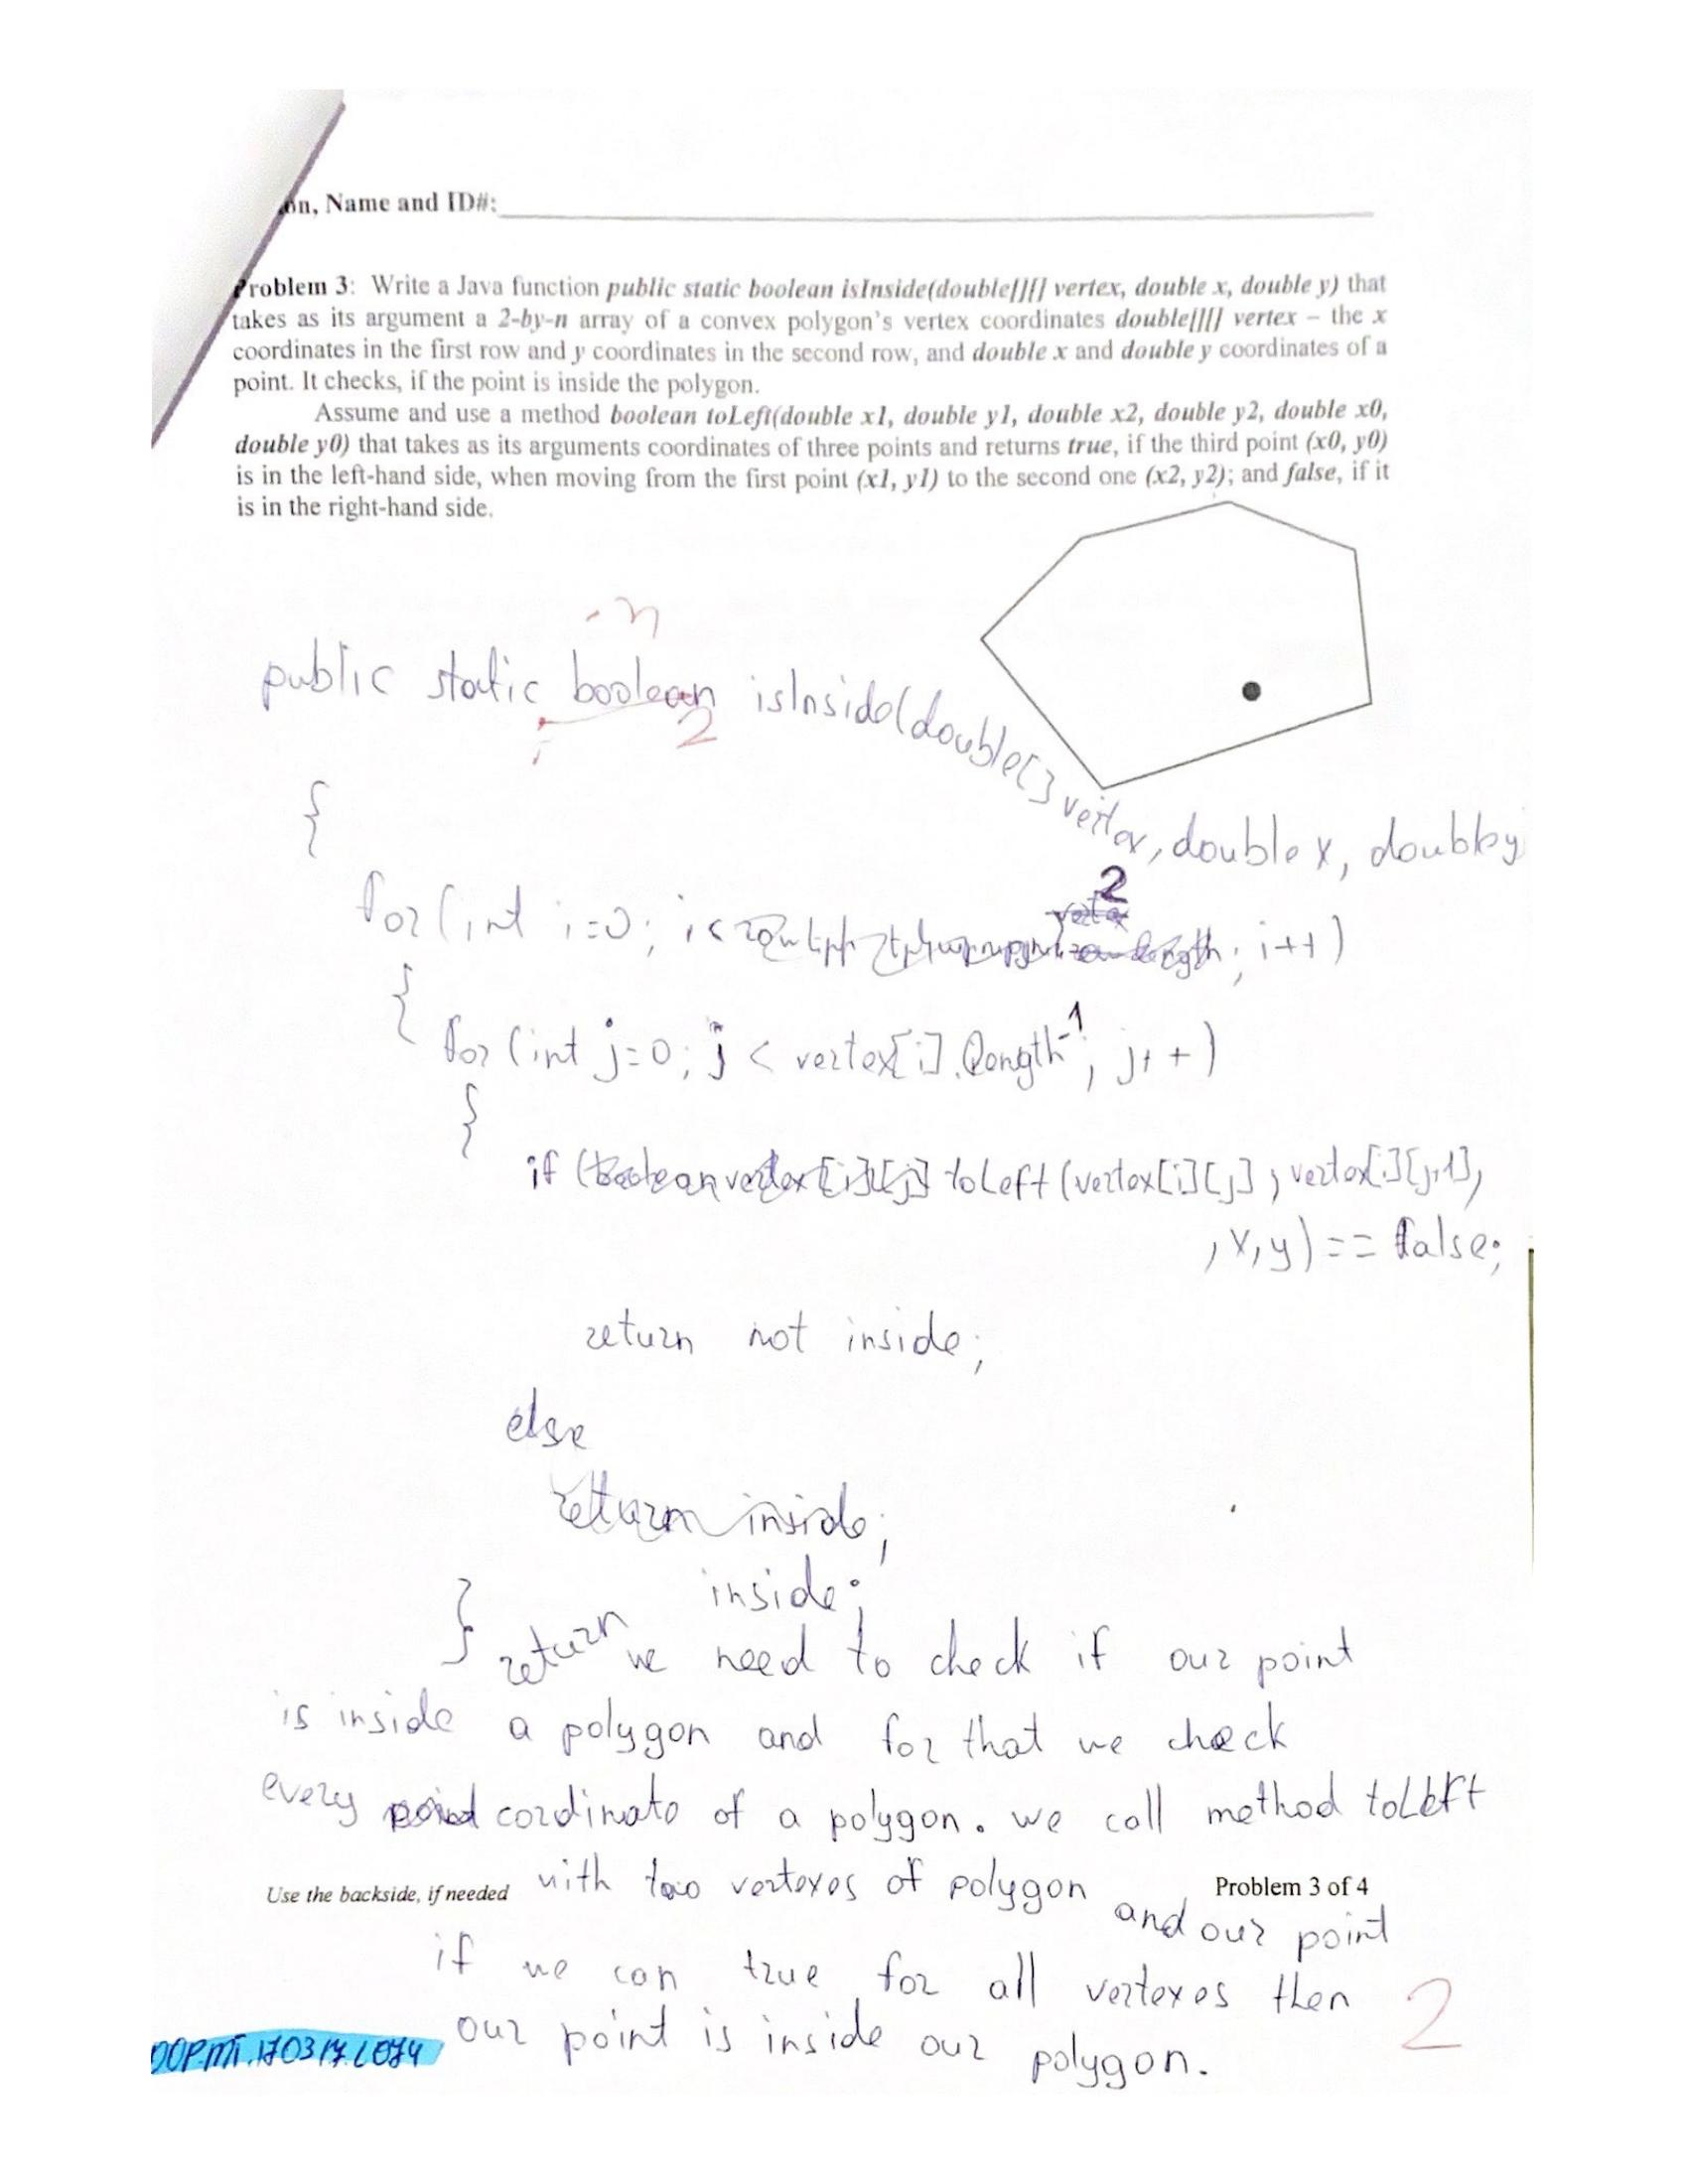 on, Name and ID#:
Problem 3: Write a Java function public static boolean isInside(double[][] vertex, double x, double y) that
takes as its argument a 2-by-n array of a convex polygon's vertex coordinates double[][] vertex – the x
coordinates in the first row and y coordinates in the second row, and double x and double y coordinates of a
point. It checks, if the point is inside the polygon.
Assume and use a method boolean toLeft(double x1, double y1, double x2, double y2, double x0,
double y0) that takes as its arguments coordinates of three points and returns true, if the third point (x0, y0)
is in the left-hand side, when moving from the first point (x1, y1) to the second one (x2, y2); and false, if it
is in the right-hand side.
n
public static boolean isInside(double[] vertex, double x, double y
2
{
for (int i=0; i< 2; i++)
{
for (int j=0; j < vertex[i].length-1; j++)
{
if (toLeft (vertex[i][j], vertex[i][j+1],
, x, y) == false;
return not inside;
else
return inside;
inside;
} return we need to check if our point
is inside a polygon and for that we check
every cordinate of a polygon. we call method toLeft
with two vertexes of polygon
Use the backside, if needed
Problem 3 of 4
and our point
if we can true for all vertexes then
our point is inside our polygon.
2